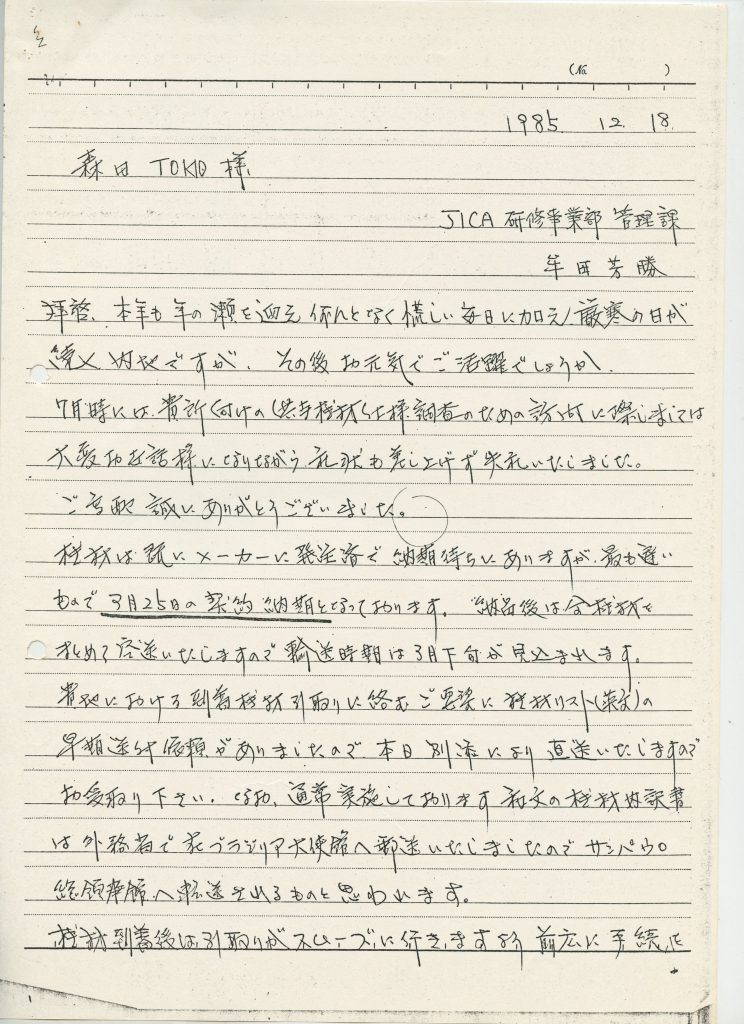 (No. )
1985. 12. 18.
森田 TOKIO 様
JICA 研修事業部 管理課
牟田芳勝
拝啓、本年も年の瀬を迎え何んとなく慌しい毎日に加え厳寒の日が
続く内地ですが、その後お元気でご活躍でしょうか。
7月時には、貴所(付けの)供与機材仕様調査のための訪問に際しましては
大変お世話様になりながら、礼状も差し上げず失礼いたしました。
ご高配 誠にありがとうございました。
機材は既にメーカーに発注済で納期待ちにありますが、最も遅い
もので3月25日の契約納期となっております。納品後は全機材を
まとめて空送いたしますので輸送時期は3月下旬が見込まれます。
貴地における到着機材引取りに絡むご要望に機材リスト(英文)の
早期送付依頼がありましたので、本日別添により直送いたしますので
お受取り下さい。なお、通常実施しております和文の機材内訳書
は外務省で在ブラジリア大使館へ郵送いたしましたのでサンパウロ
総領事館へ転送されるものと思われます。
機材到着後は、引取りがスムーズに行きますよう前広に手続を